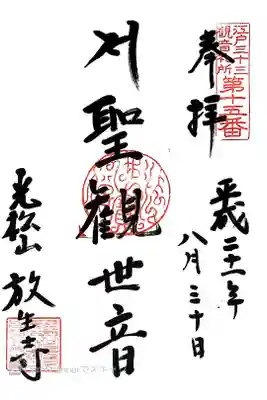 江戸三十三
観音札所
第十五番
奉拝
平成二十一年
八月三十日
聖観世音
光松山
放生寺